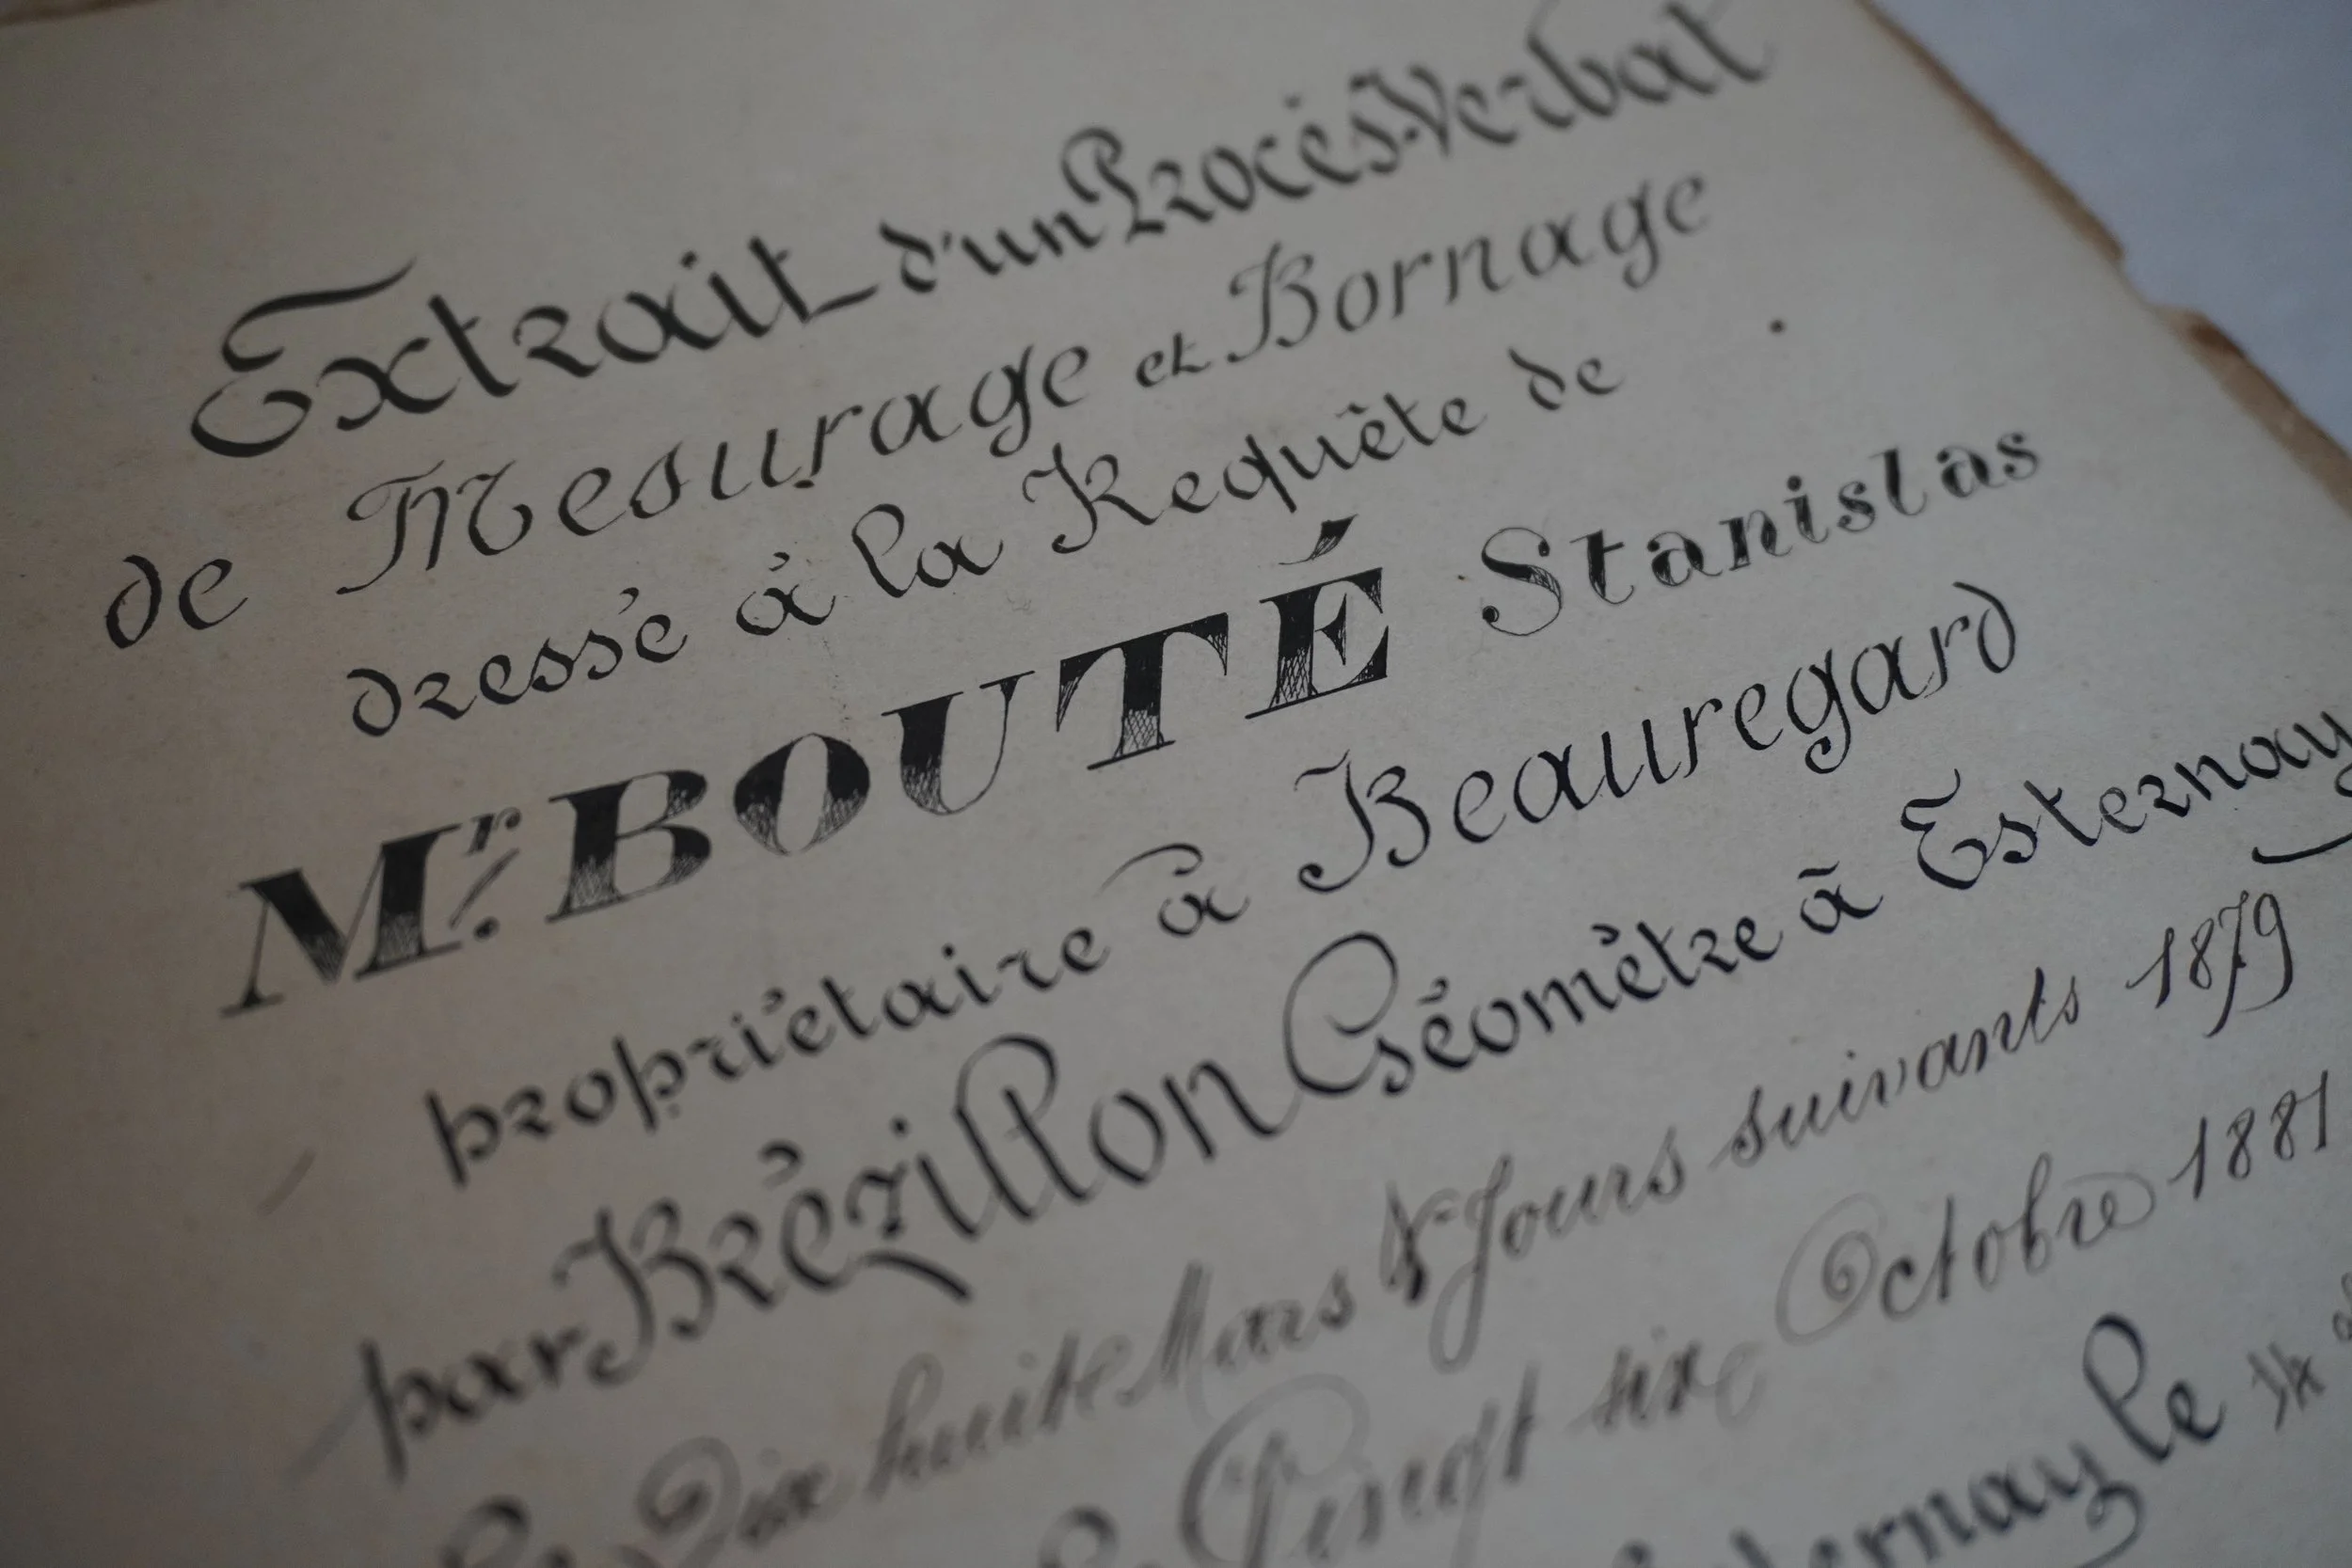 Extrait d'un Procès-Verbal
de Mesurage et Bornage
dressé à la Requête de
Mr. BOUTÉ Stanislas
propriétaire à Beauregard
par Brézillon Géomètre à Esternay
le Dix huit Mars & Jours suivants 1879
le Vingt six Octobre 1881
Esternay le